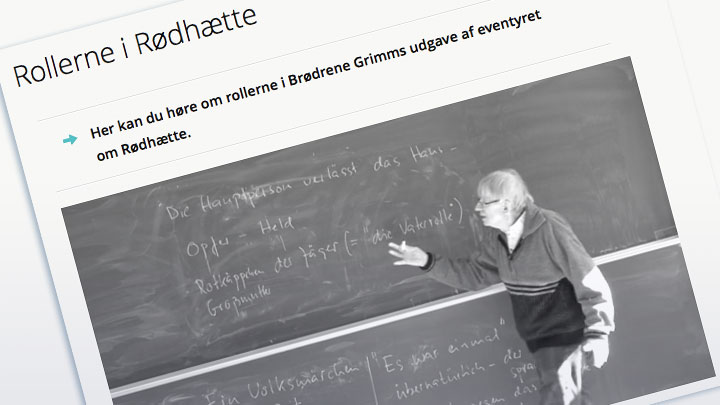 Rollerne i Rødhætte
Her kan du høre om rollerne i Brødrene Grimms udgave af eventyret
om Rødhætte.
Die Hauptperson verlässt das Haus -
Opfer - Held
Rotkäppchen der Jäger (= "die Vaterrolle)
Großmutter
Ein Volksmärchen "Es war einmal"
übernatürlich - der
das